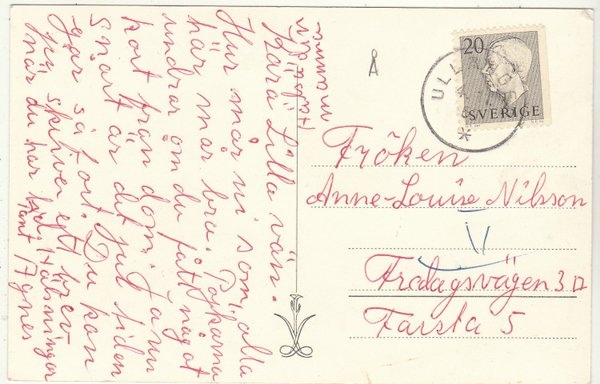 Kära Lilla vän.
Hur mår ni som, alla
här mår bra. Pojkarna
undrar om du fått något
kort från dom. Ja nu
snart är det jul tiden
går så fort. Du kan
ju skriva ett brev
när du har tid. Hälsningar
Tant Agnes
mamma
20
SVERIGE
ULL
Fröken
Anne-Louise Nilsson
Fredagsvägen 3 D
Farsta 5